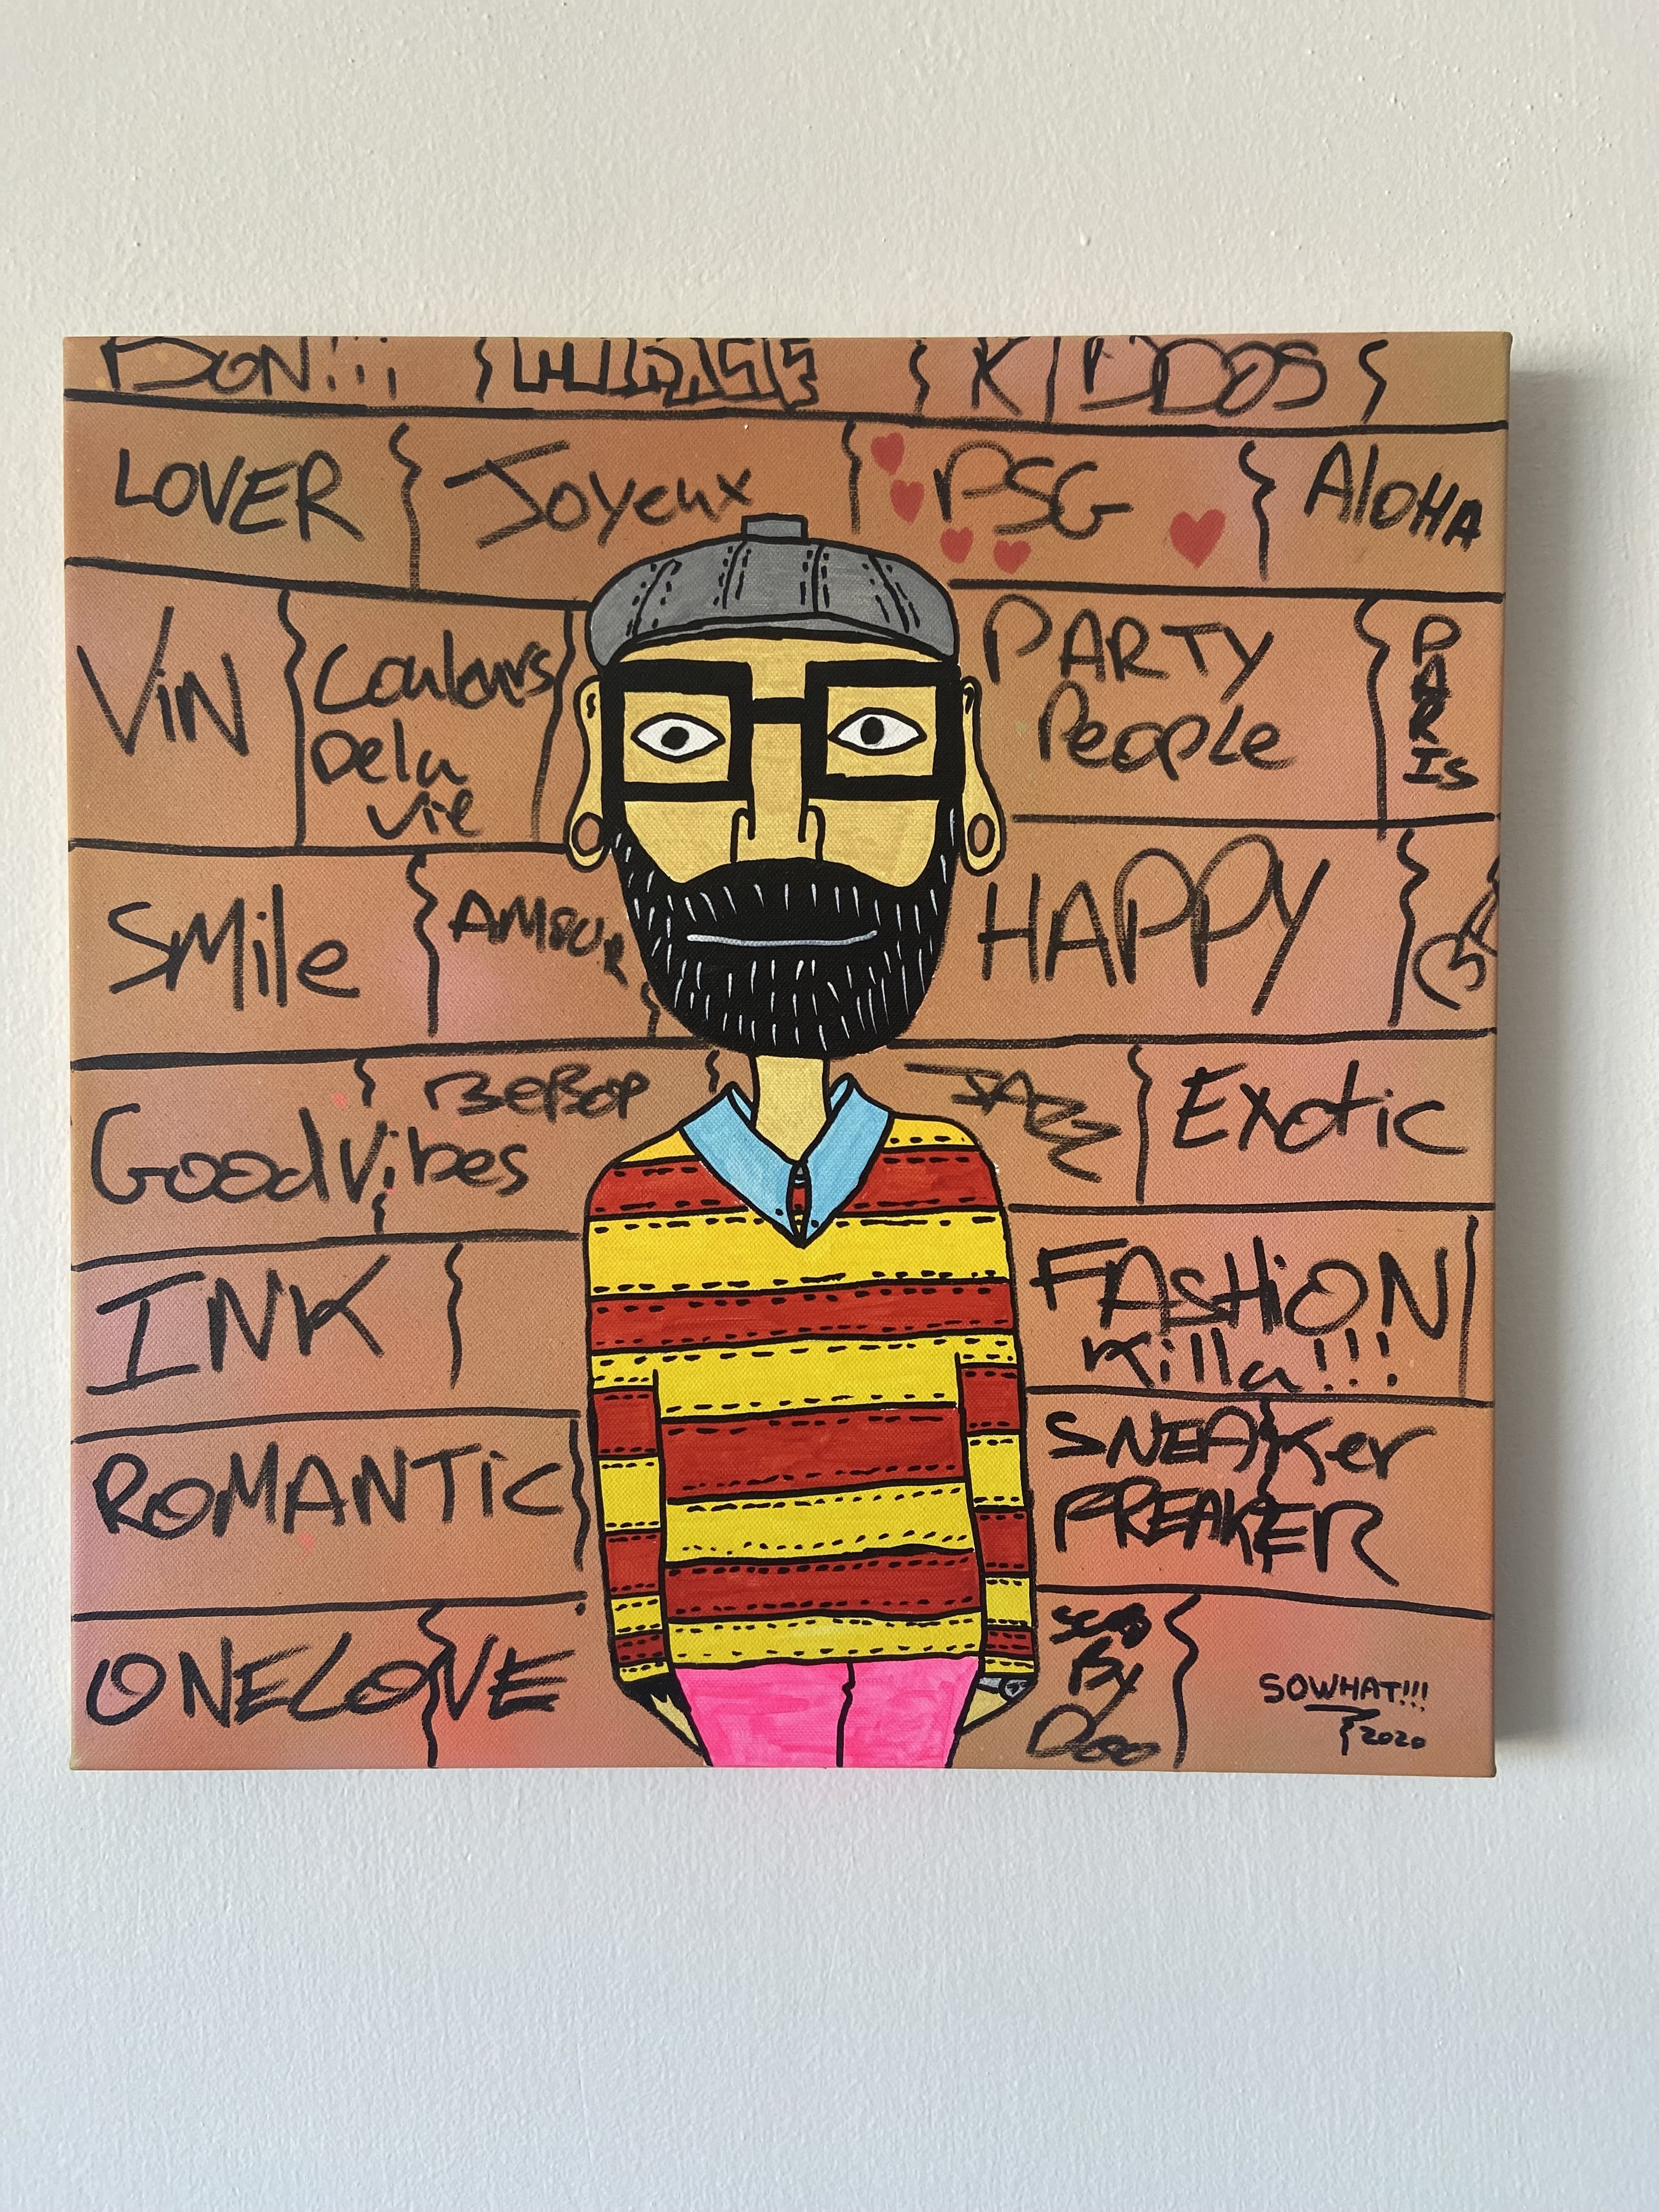 BON!!!
KIDDOS
LOVER
Joyeux
PSG
AlOHA
ViN
Couleurs
De la
Vie
PARTY
PeopLe
PARIS
SMile
AMOUR
HAPPY
Good Vibes
BeBop
JAZZ
Exotic
INK
FASHiON
Killa!!!
ROMANTiC
SNEAKer
FREAKER
ONELOVE
By
Doo
SOWHAT!!!
2020